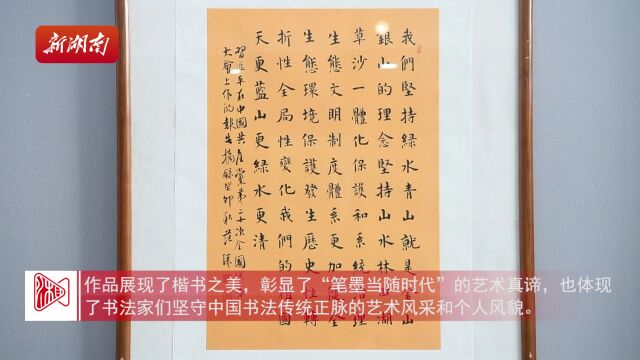 新湖南
我們堅持綠水青山就是金山
銀山的理念堅持山水林田湖
草沙一體化保護和系統治理
生態文明制度體系更加健全
生態環境保護發生歷史性轉
折性全局性變化我們的祖國
天更藍山更綠水更清
習近平在中國共產黨第二十次全國
大會上作的報告摘錄癸卯秋范
作品展现了楷书之美，彰显了“笔墨当随时代”的艺术真谛，也体现
了书法家们坚守中国书法传统正脉的艺术风采和个人风貌。